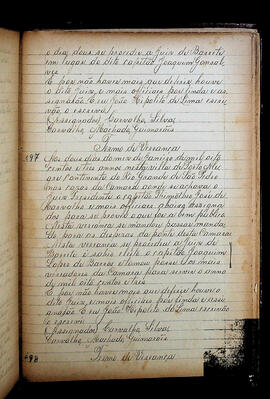 o dia dous se procedeu a Juiz de Barrete
em lugar do dito capitão Joaquim Gonsal-
ves
E por não haver mais que deferir houve
o dito Juiz e mais officiais por finda e as-
signarão E eu João Hipolito de Lima escri-
vão o escrevi
(Assignados) Carvalho, Silva,
Carvalho, Machado, Guimarães
Termo de Vereança
497 Aos dous dias do mez de Janeiro de mil oito
centos e tres annos nesta villa de Porto Ale-
gre Continente do Rio Grande de São Pedro
nas cazas da Camara donde se achava o
Juiz Presidente o capitão Thimotheo José de
Carvalho e mais officiais abaixo assigna-
dos para se prover o que for a bem publico
Nesta vereança se mandou passar manda-
do para as despezas da ponte desta Camara
Nesta vereança se procedeu a Juiz de
Barrete e sahio eleito o capitão Joaquim
Lopes de Barros e tomou posse dos mais
vereadores da Camara para servir o anno
de mil oito centos e tres
E por não haver mais que deferir houve o
dito Juiz e mais officiais por finda e assi-
gnarão E eu João Hipolito de Lima escrivão
o escrevi
(Assignados) Carvalho, Silva,
Carvalho, Machado, Guimarães
498 Termo de Vereança